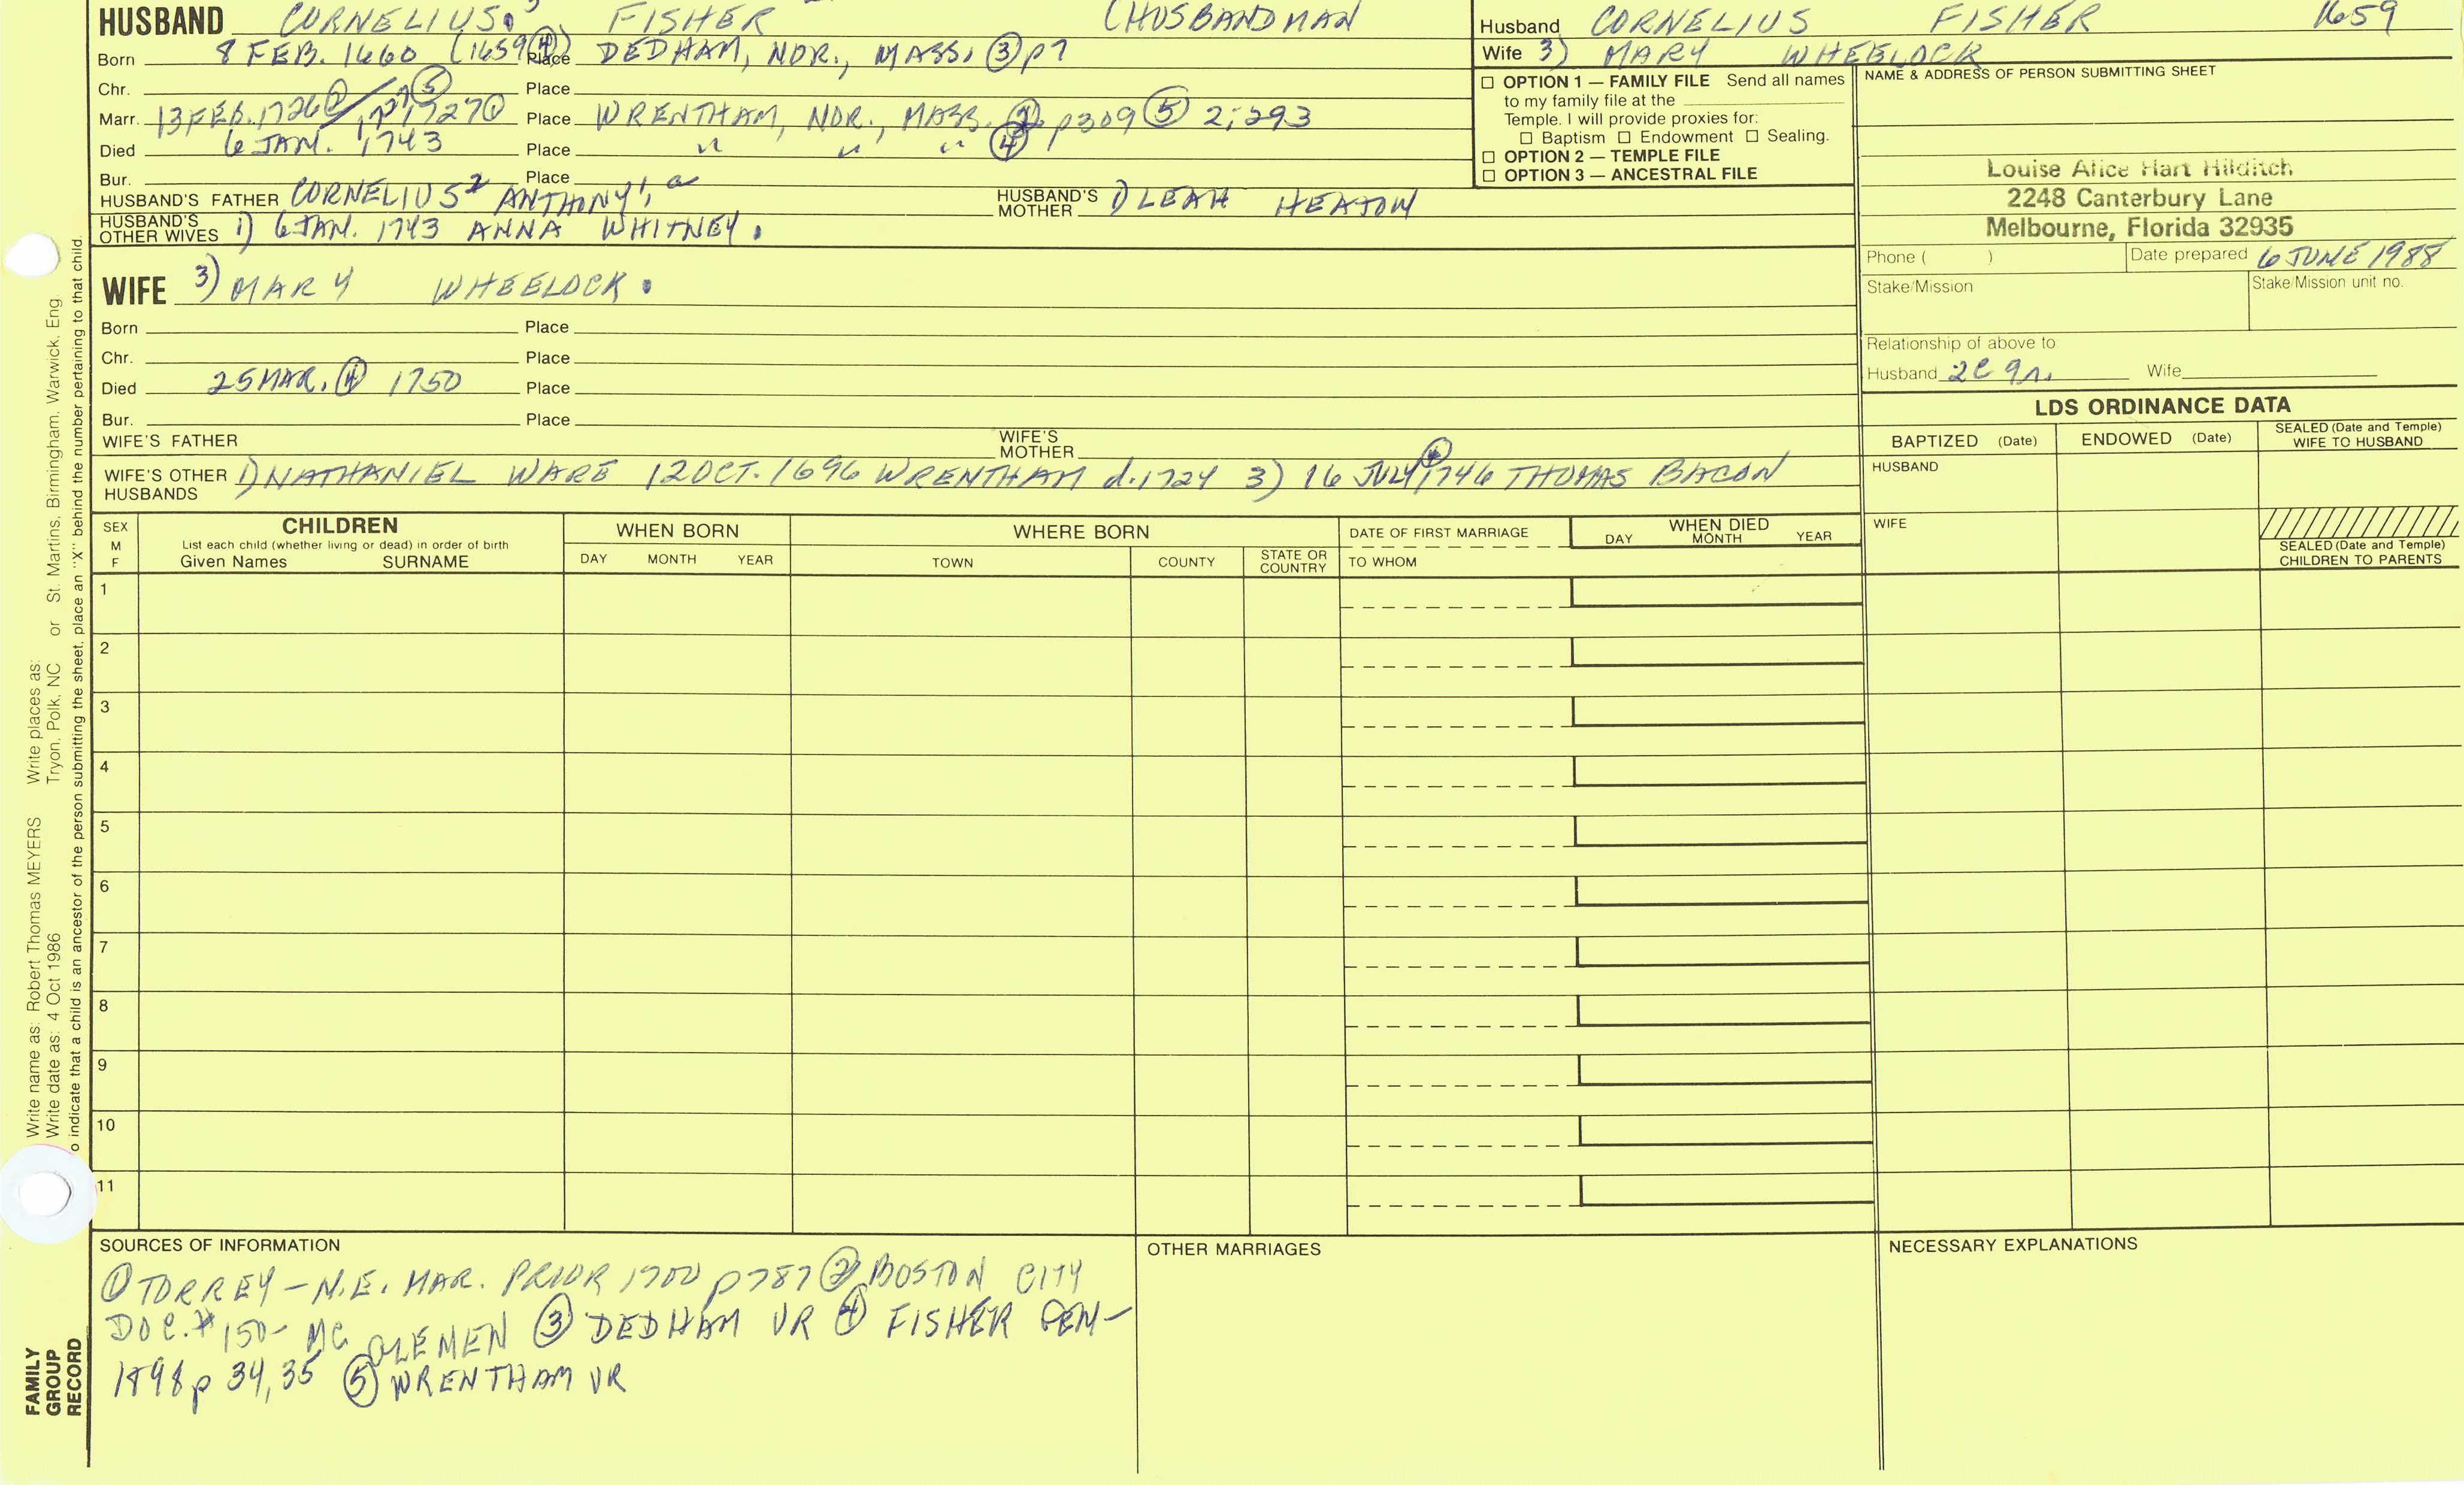 HUSBAND CORNELIUS.3 FISHER (HUSBANDMAN
Born 8 FEB. 1660 (1659④) Place DEDHAM, NOR., MASS. ③ p7
Chr. Place
Marr. 13 FEB. 1726②/ 1727① ⑤ Place WRENTHAM, NOR., MASS. p309 ⑤ 2;293
Died 6 JAN. 1743 Place " " " ④
Bur. Place
HUSBAND'S FATHER CORNELIUS2 ANTHONY1, a HUSBAND'S MOTHER 1) LEAH HEATON
HUSBAND'S OTHER WIVES 1) 6 JAN. 1743 ANNA WHITNEY.
Husband CORNELIUS FISHER 1659
Wife 3) MARY WHEELOCK
☐ OPTION 1 — FAMILY FILE Send all names
to my family file at the
Temple. I will provide proxies for:
☐ Baptism ☐ Endowment ☐ Sealing.
☐ OPTION 2 — TEMPLE FILE
☐ OPTION 3 — ANCESTRAL FILE
NAME & ADDRESS OF PERSON SUBMITTING SHEET
Louise Alice Hart Hilditch
2248 Canterbury Lane
Melbourne, Florida 32935
Phone ( ) Date prepared 6 JUNE 1988
Stake/Mission Stake/Mission unit no.
Relationship of above to
Husband 2C 9r. Wife
WIFE 3) MARY WHEELOCK.
Born Place
Chr. Place
Died 25 MAR. ④ 1750 Place
Bur. Place
WIFE'S FATHER WIFE'S MOTHER
WIFE'S OTHER HUSBANDS 1) NATHANIEL WARE 12 OCT. 1696 WRENTHAM d. 1724 3) 16 JULY ④ 1746 THOMAS BACON
LDS ORDINANCE DATA
BAPTIZED (Date) ENDOWED (Date) SEALED (Date and Temple) WIFE TO HUSBAND
HUSBAND
WIFE
SEALED (Date and Temple) CHILDREN TO PARENTS
SEX M F
CHILDREN
List each child (whether living or dead) in order of birth
Given Names SURNAME
WHEN BORN
DAY MONTH YEAR
WHERE BORN
TOWN COUNTY STATE OR COUNTRY
DATE OF FIRST MARRIAGE
TO WHOM
WHEN DIED
DAY MONTH YEAR
1
2
3
4
5
6
7
8
9
10
11
SOURCES OF INFORMATION
① TORREY - N.E. MAR. PRIOR 1700 p787 ② BOSTON CITY
DOC. # 150- MC GLEMEN ③ DEDHAM VR ④ FISHER GEN-
1898 p 34, 35 ⑤ WRENTHAM VR
OTHER MARRIAGES
NECESSARY EXPLANATIONS
Write name as: Robert Thomas MEYERS Write places as:
Write date as: 4 Oct 1986 Tryon, Polk, NC or St. Martins, Birmingham, Warwick, Eng.
o indicate that a child is an ancestor of the person submitting the sheet, place an "X" behind the number pertaining to that child.
FAMILY
GROUP
RECORD